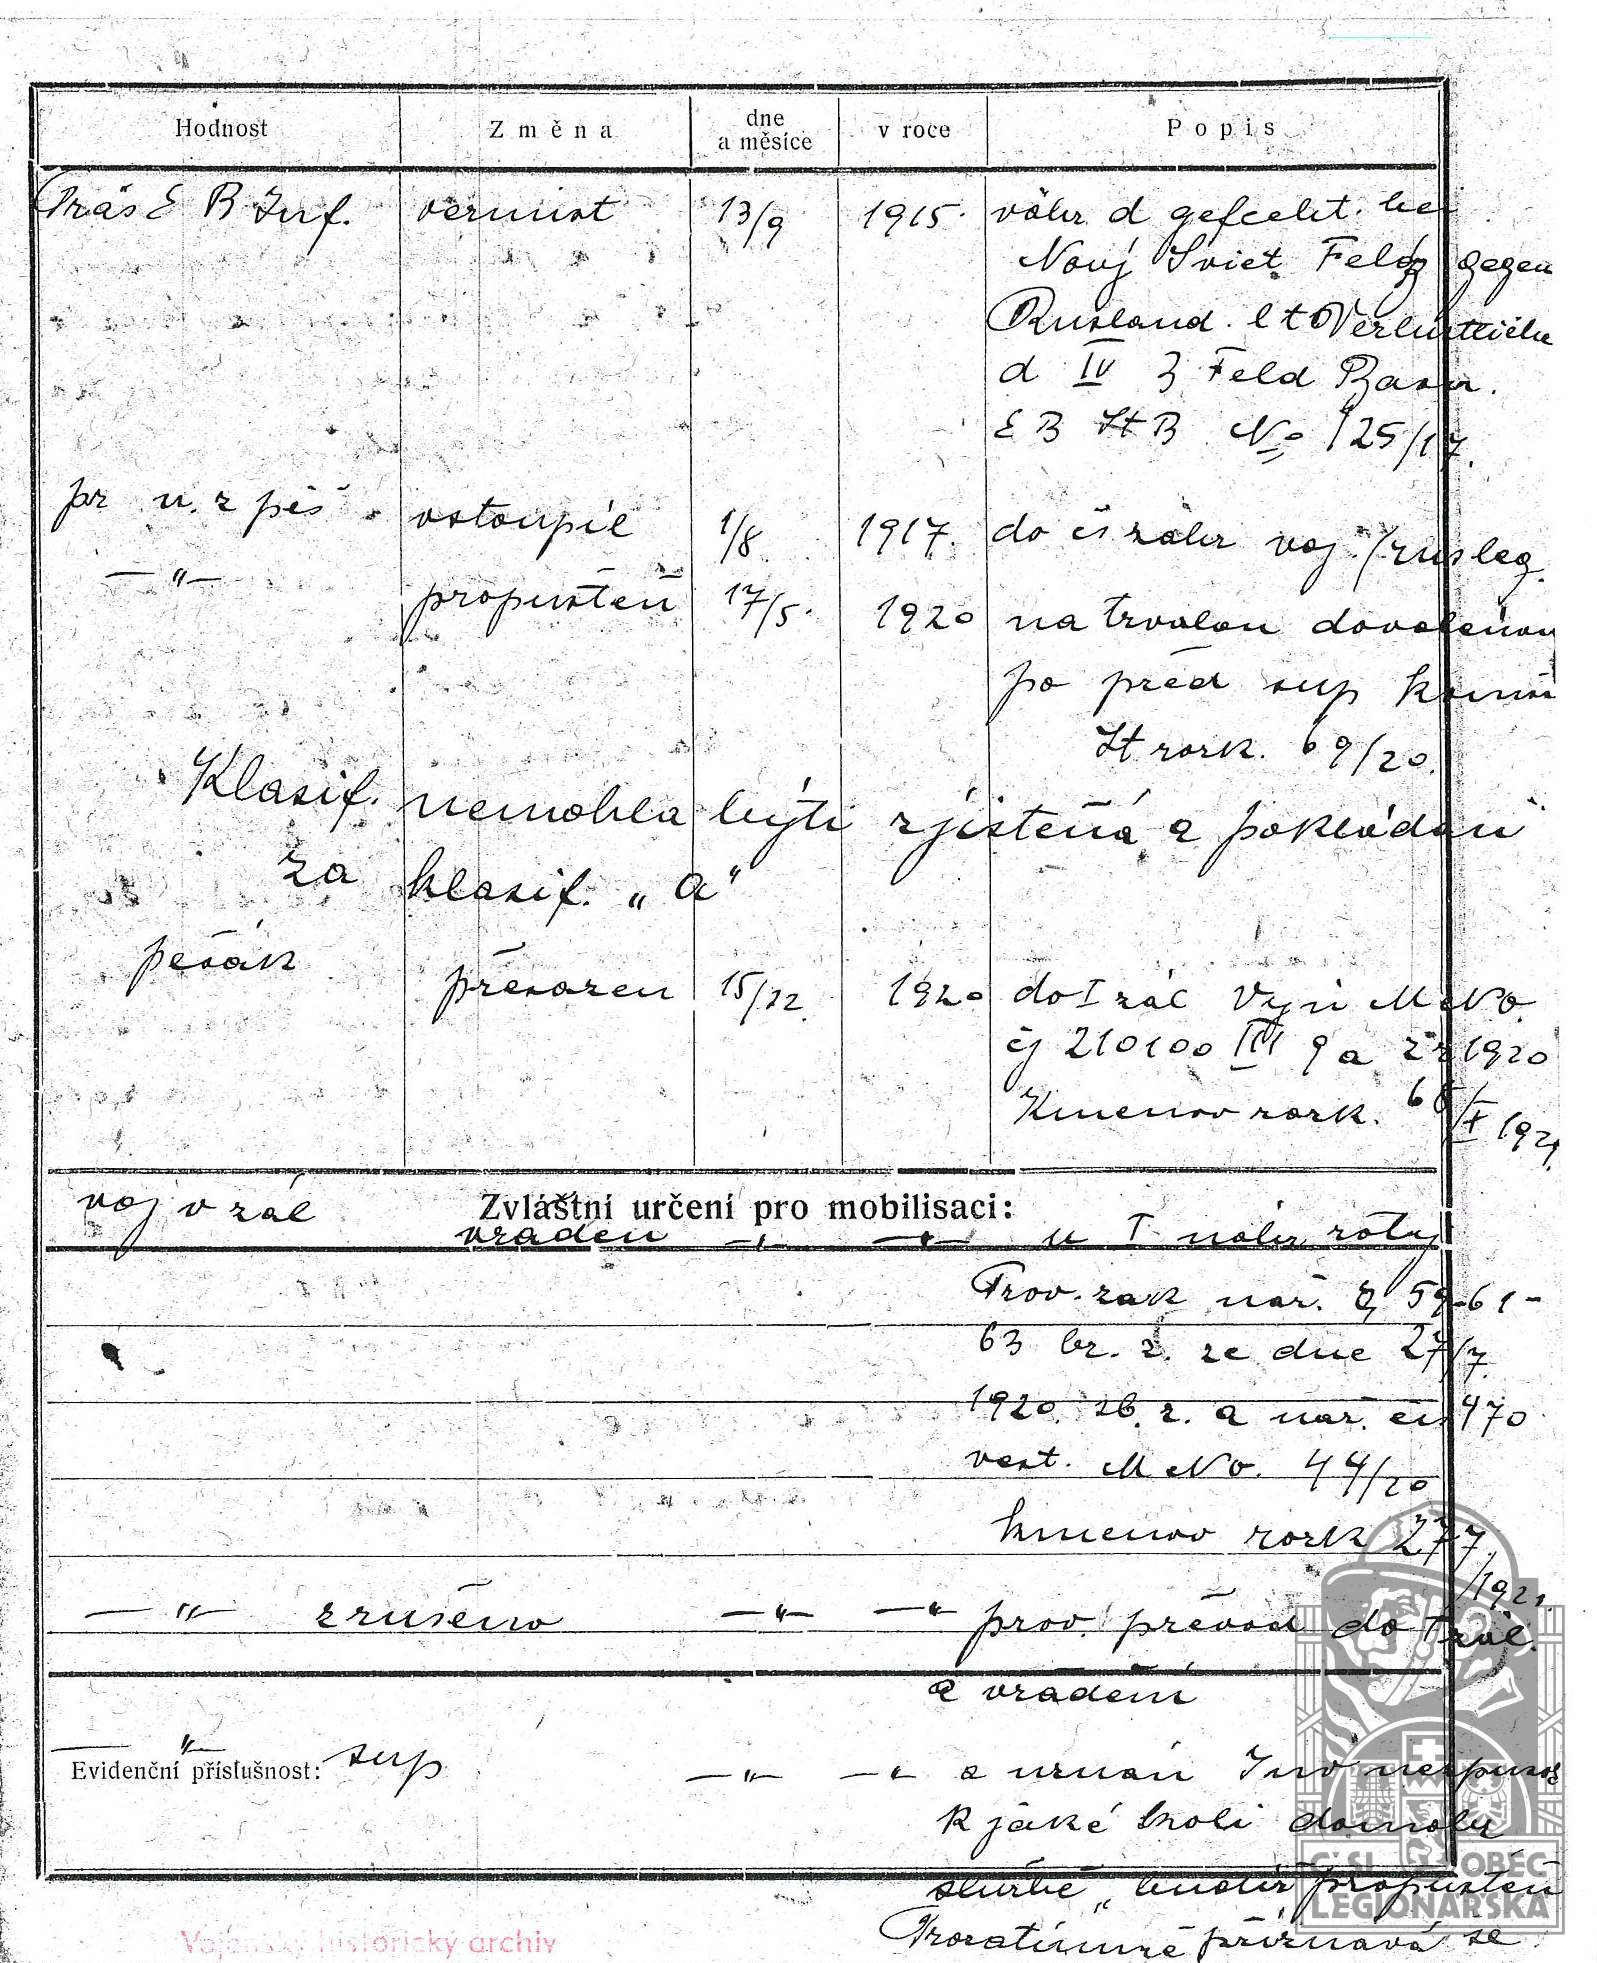 Hodnost Změna dne a měsíce v roce Popis
Präs E B Inf. vermist 13/9 1915. währ d gefecht. bei
Nový Sviet Feldz gegen
Rusland. lt Verlustliche
d IV Z Feld Baon.
E B St B No 125/17.
pr n. z pěš. vstoupil 1/8. 1917. do čs zahr voj. /rus leg.
—„— propuštěn 17/5. 1920 na trvalou dovolenou
po před sup komisi
St rozk. 69/20.
Klasif. nemohla býti zjištěná a pokládán
za klasif. „a“
pěšák přeřazen 15/12. 1920 do I zál Výn M N O.
čj 210100 III 9 a z r 1920
Kmenov rozk. 68/X 1921.
voj v zál Zvláštní určení pro mobilisaci:
vřaděn —„— —„— u I náhr roty
Prov. zák nař. č 59-61-
63 br. z. ze dne 27/7.
1920. sb. z. a nař. čís 470
věst. M N O. 44/20
kmenov rozk 277/1921.
—„— zrušeno —„— —„— prov. převod do I zál.
a vřadění
—„—
Evidenční příslušnost: sup —„— —„ a uznán Inv neschopns
k jaké koli domoby
službě „budiž propuštěn
Prozatimně přiznává se
Vojenský historický archiv
ČSL OBEC
LEGIONÁŘSKÁ